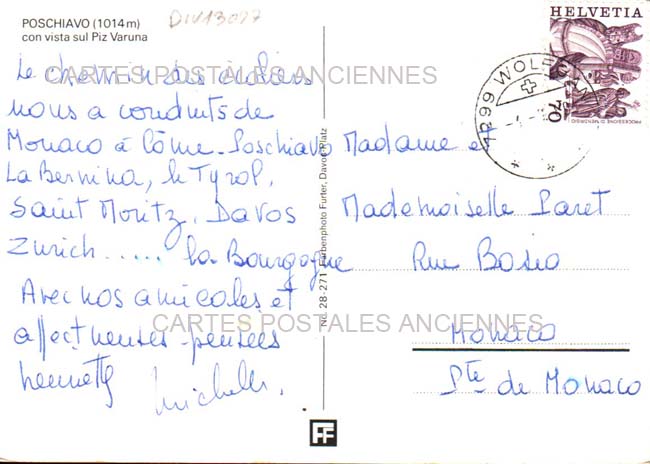 POSCHIAVO (1014 m)
con vista sul Piz Varuna
DIV13027
Le chemin des
nous a conduits de
Monaco à Côme - Poschiavo
La Bernina, le Tyrol,
Saint Moritz, Davos
Zurich...... la Bourgogne
Avec nos amicales et
affectueuses pensées
Michelle.
CARTES POSTALES ANCIENNES
CARTES POSTALES ANCIENNES
No. 28-271 Farbenphoto Furter, Davos-Platz
HELVETIA
70
PROCESSIONE D. MENDRISIO
1299 WOLFGANG
Madame et
Mademoiselle Paret
Rue Bosio
Monaco
Pté de Monaco
FF